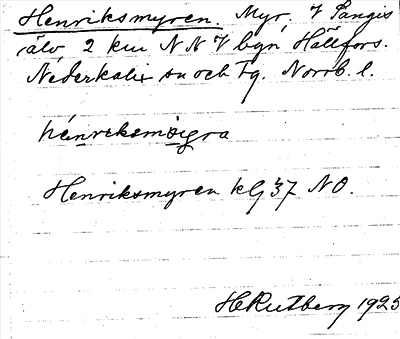 Henriksmyren. Myr. V Sangis
älv 2 km NNV byn Hällfors.
Nederkalix sn och Fg. Norrb. l.
hénriksmöigra
Henriksmyren klg 37 NO.
HRutberg 1925